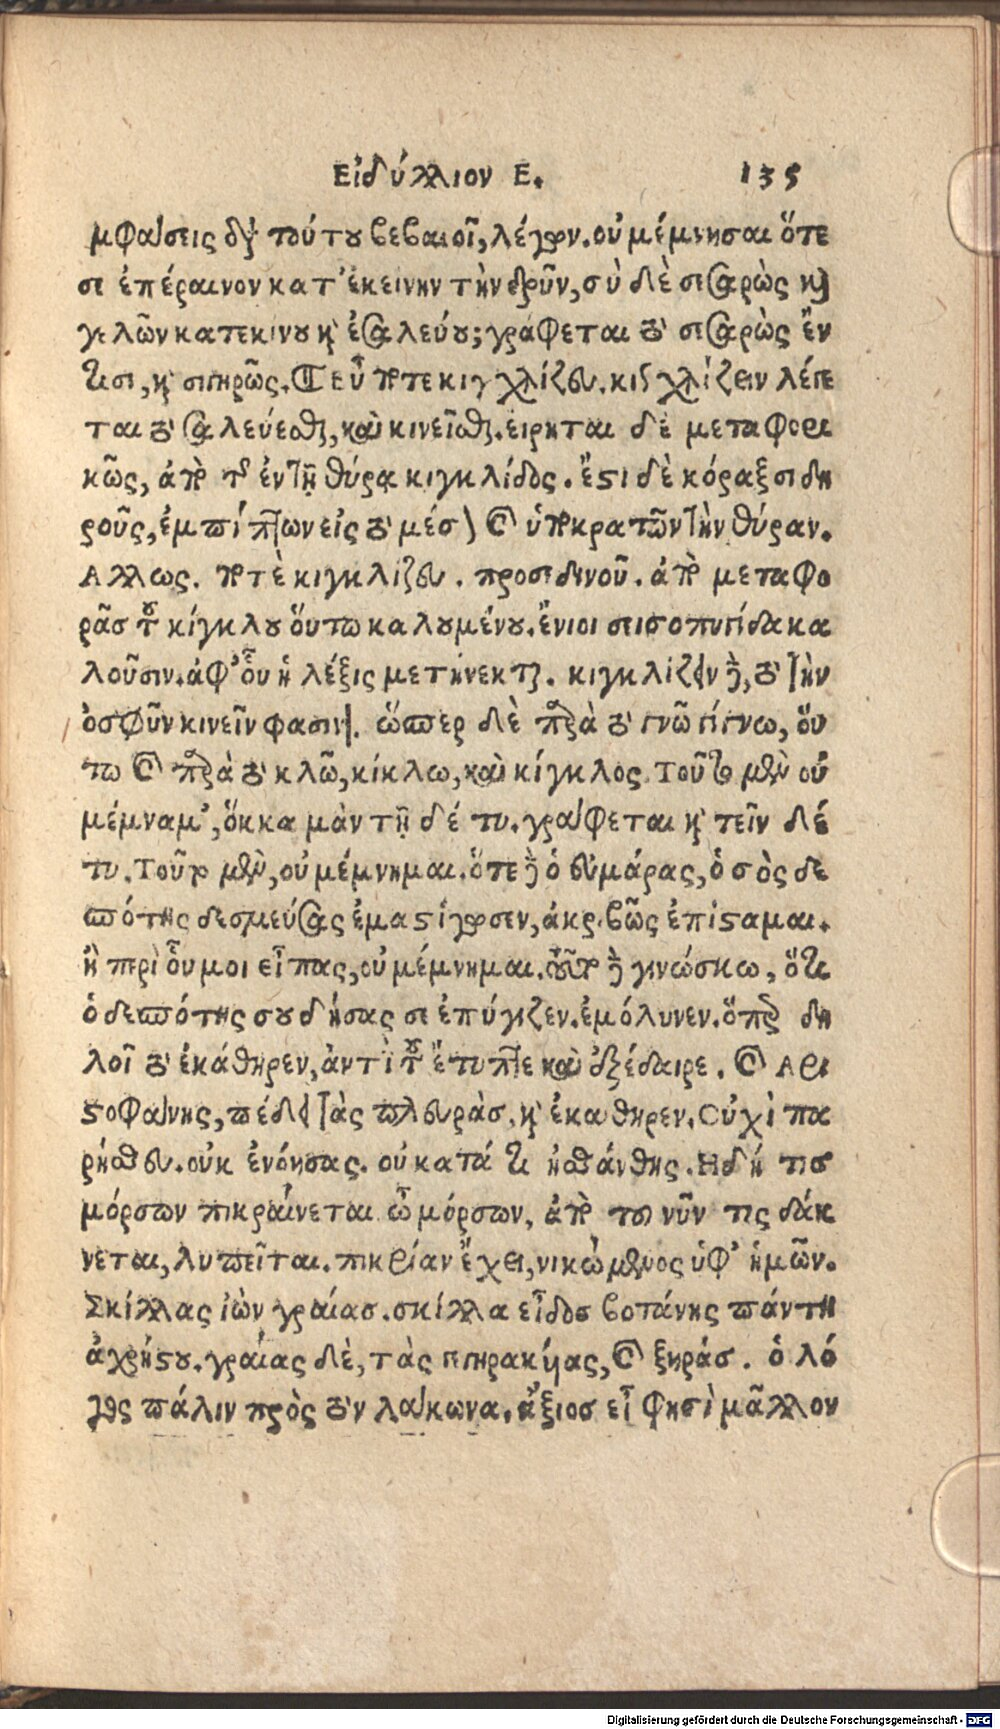 Εἰδύλλιον Ε. 135
μφαίσεις διὰ τούτου βεβαιοῖ, λέγων. οὐ μέμνησαι ὅτε
σε ἐπέραινον κατ' ἐκείνην τὴν δρῦν, σὺ δὲ σεσαρὼς καὶ
γελῶν κατεκινοῦ καὶ ἐσαλεύου; γράφεται τὸ σεσαρὼς ἔν
τισι, καὶ σεσηρῶς. εὖ ποτεκιγχλίζευ. κιγχλίζειν λέγε
ται τὸ σαλεύεσθαι, καὶ κινεῖσθαι. εἴρηται δὲ μεταφορι
κῶς, ἀπὸ τῆς ἐν τῇ θύρᾳ κιγκλίδος. ἔστι δὲ κόραξ σιδη
ροῦς, ἐμπίπτων εἰς τὸ μέσον καὶ ὑποκρατῶν τὴν θύραν.
Αλλως. ποτεκιγκλίζευ. προσεδινοῦ. ἀπὸ μεταφο
ρᾶς τοῦ κίγκλου οὕτω καλουμένου. ἔνιοι σεισοπυγίδα κα
λοῦσιν. ἀφ' οὗ ἡ λέξις μετήνεκται. κιγκλίζειν γὰρ, τὸ τὴν
ὀσφῦν κινεῖν φασιν. ὥσπερ δὲ παρὰ τὸ γνῶ γίγνω, οὕ
τω καὶ παρὰ τὸ κλῶ, κίκλω, καὶ κίγκλος. Τοῦτο μὲν οὐ
μέμναμ', ὅκκα μάν τῇδέ τυ. γράφεται καὶ τεῖν δέ
τυ. Τοῦτο μὲν, οὐ μέμνημαι. ὅτε γὰρ ὁ εὐμάρας, ὁ σὸς δε
σπότης δεσμεύσας ἐμαστίγωσεν, ἀκριβῶς ἐπίσταμαι.
ἢ περὶ οὗ μοι εἶπας, οὐ μέμνημαι. τοῦτο γὰρ γινώσκω, ὅτι
ὁ δεσπότης σου δήσας σε ἐπύγιζεν. ἐμόλυνεν. ὅπερ δη
λοῖ τὸ ἐκάθηρεν, ἀντὶ τοῦ ἔτυπτε καὶ ἐξέδαιρε. καὶ Αρι
στοφάνης, παίδει τὰς πλευράσ. καὶ ἐκάθηρεν. Οὐχὶ πα
ρῄσθευ. οὐκ ἐνόησας. οὐ κατά τι ᾐσθάνθης. Ηδή τισ
μόρσων πικραίνεται ὦ μόρσων, ἀπὸ τοῦ νῦν τις δάκ
νεται, λυπεῖται. πικρίαν ἔχει, νικώμενος ὑφ' ἡμῶν.
Σκίλλας ἰὼν γραίασ. σκίλλα εἶδοσ βοτάνης πάντη
ἀχρήστου. γραίας δὲ, τὰς παρακμίας, καὶ ξηράσ. ὁ λό
γος πάλιν πρὸς τὸν λάκωνα. ἄξιοσ εἶ φησὶ μᾶλλον
Digitalisierung gefördert durch die Deutsche Forschungsgemeinschaft - DFG